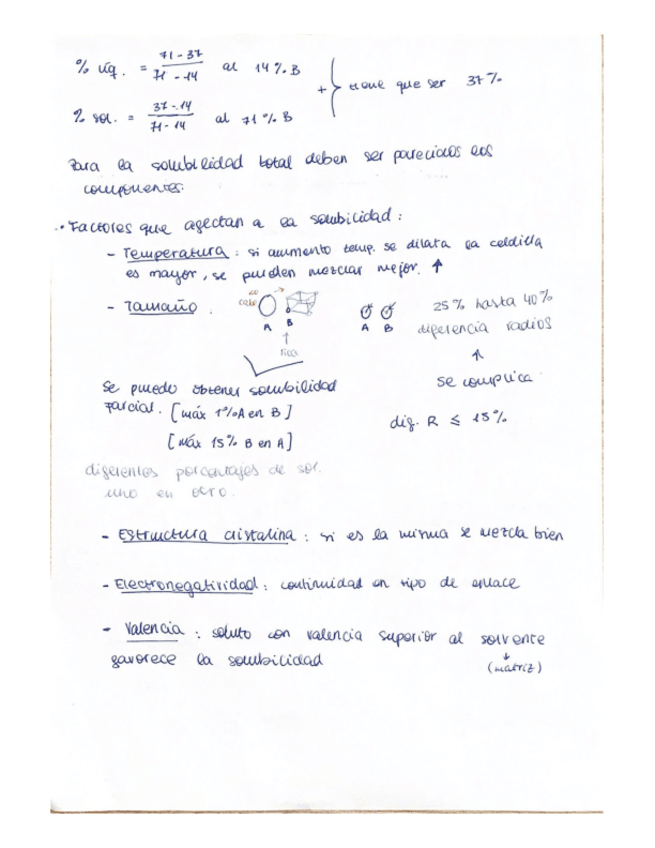 % líq. = 71-37 / 71-14 al 14% B
+ } tiene que ser 37%
% sol. = 37-14 / 71-14 al 71% B
Para la solubilidad total deben ser parecidos los
componentes.
·Factores que afectan a la solubilidad:
- Temperatura: si aumento temp. se dilata la celdilla
es mayor, se pueden mezclar mejor. ↑
- Tamaño.
A B
A B
25% hasta 40%
diferencia radios
↑
se complica
dif. R ≤ 15%
Se puede obtener solubilidad
parcial. [máx 1% A en B]
[máx 15% B en A]
diferentes porcentajes de sol.
uno en otro.
- Estructura cristalina: si es la misma se mezcla bien
- Electronegatividad: continuidad en tipo de enlace
- Valencia: soluto con valencia superior al solvente
favorece la solubilidad
↓
(matriz)